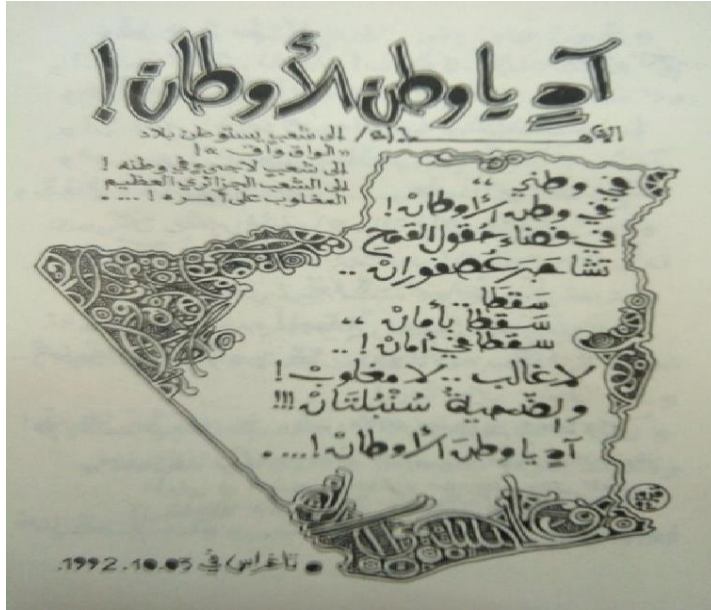 آهٍ يا وطن الأوطان!
إلى شعب يستوطن بلاد
«الواق واق»!
إلى شعب لاجئ في وطنه!
إلى الشعب الجزائري العظيم
المغلوب على أمره!....
في وطني ،،
في وطن الأوطان!
في فضاء حقول القمح
تشاجر عصفوران ..
سقطا ..
سقطا بأمان ،،
سقطا في أمان! ..
لا غالب .. لا مغلوب!
والضحية سنبلتان!!!
آهٍ يا وطن الأوطان!....
تاغراس في 1992.10.03.